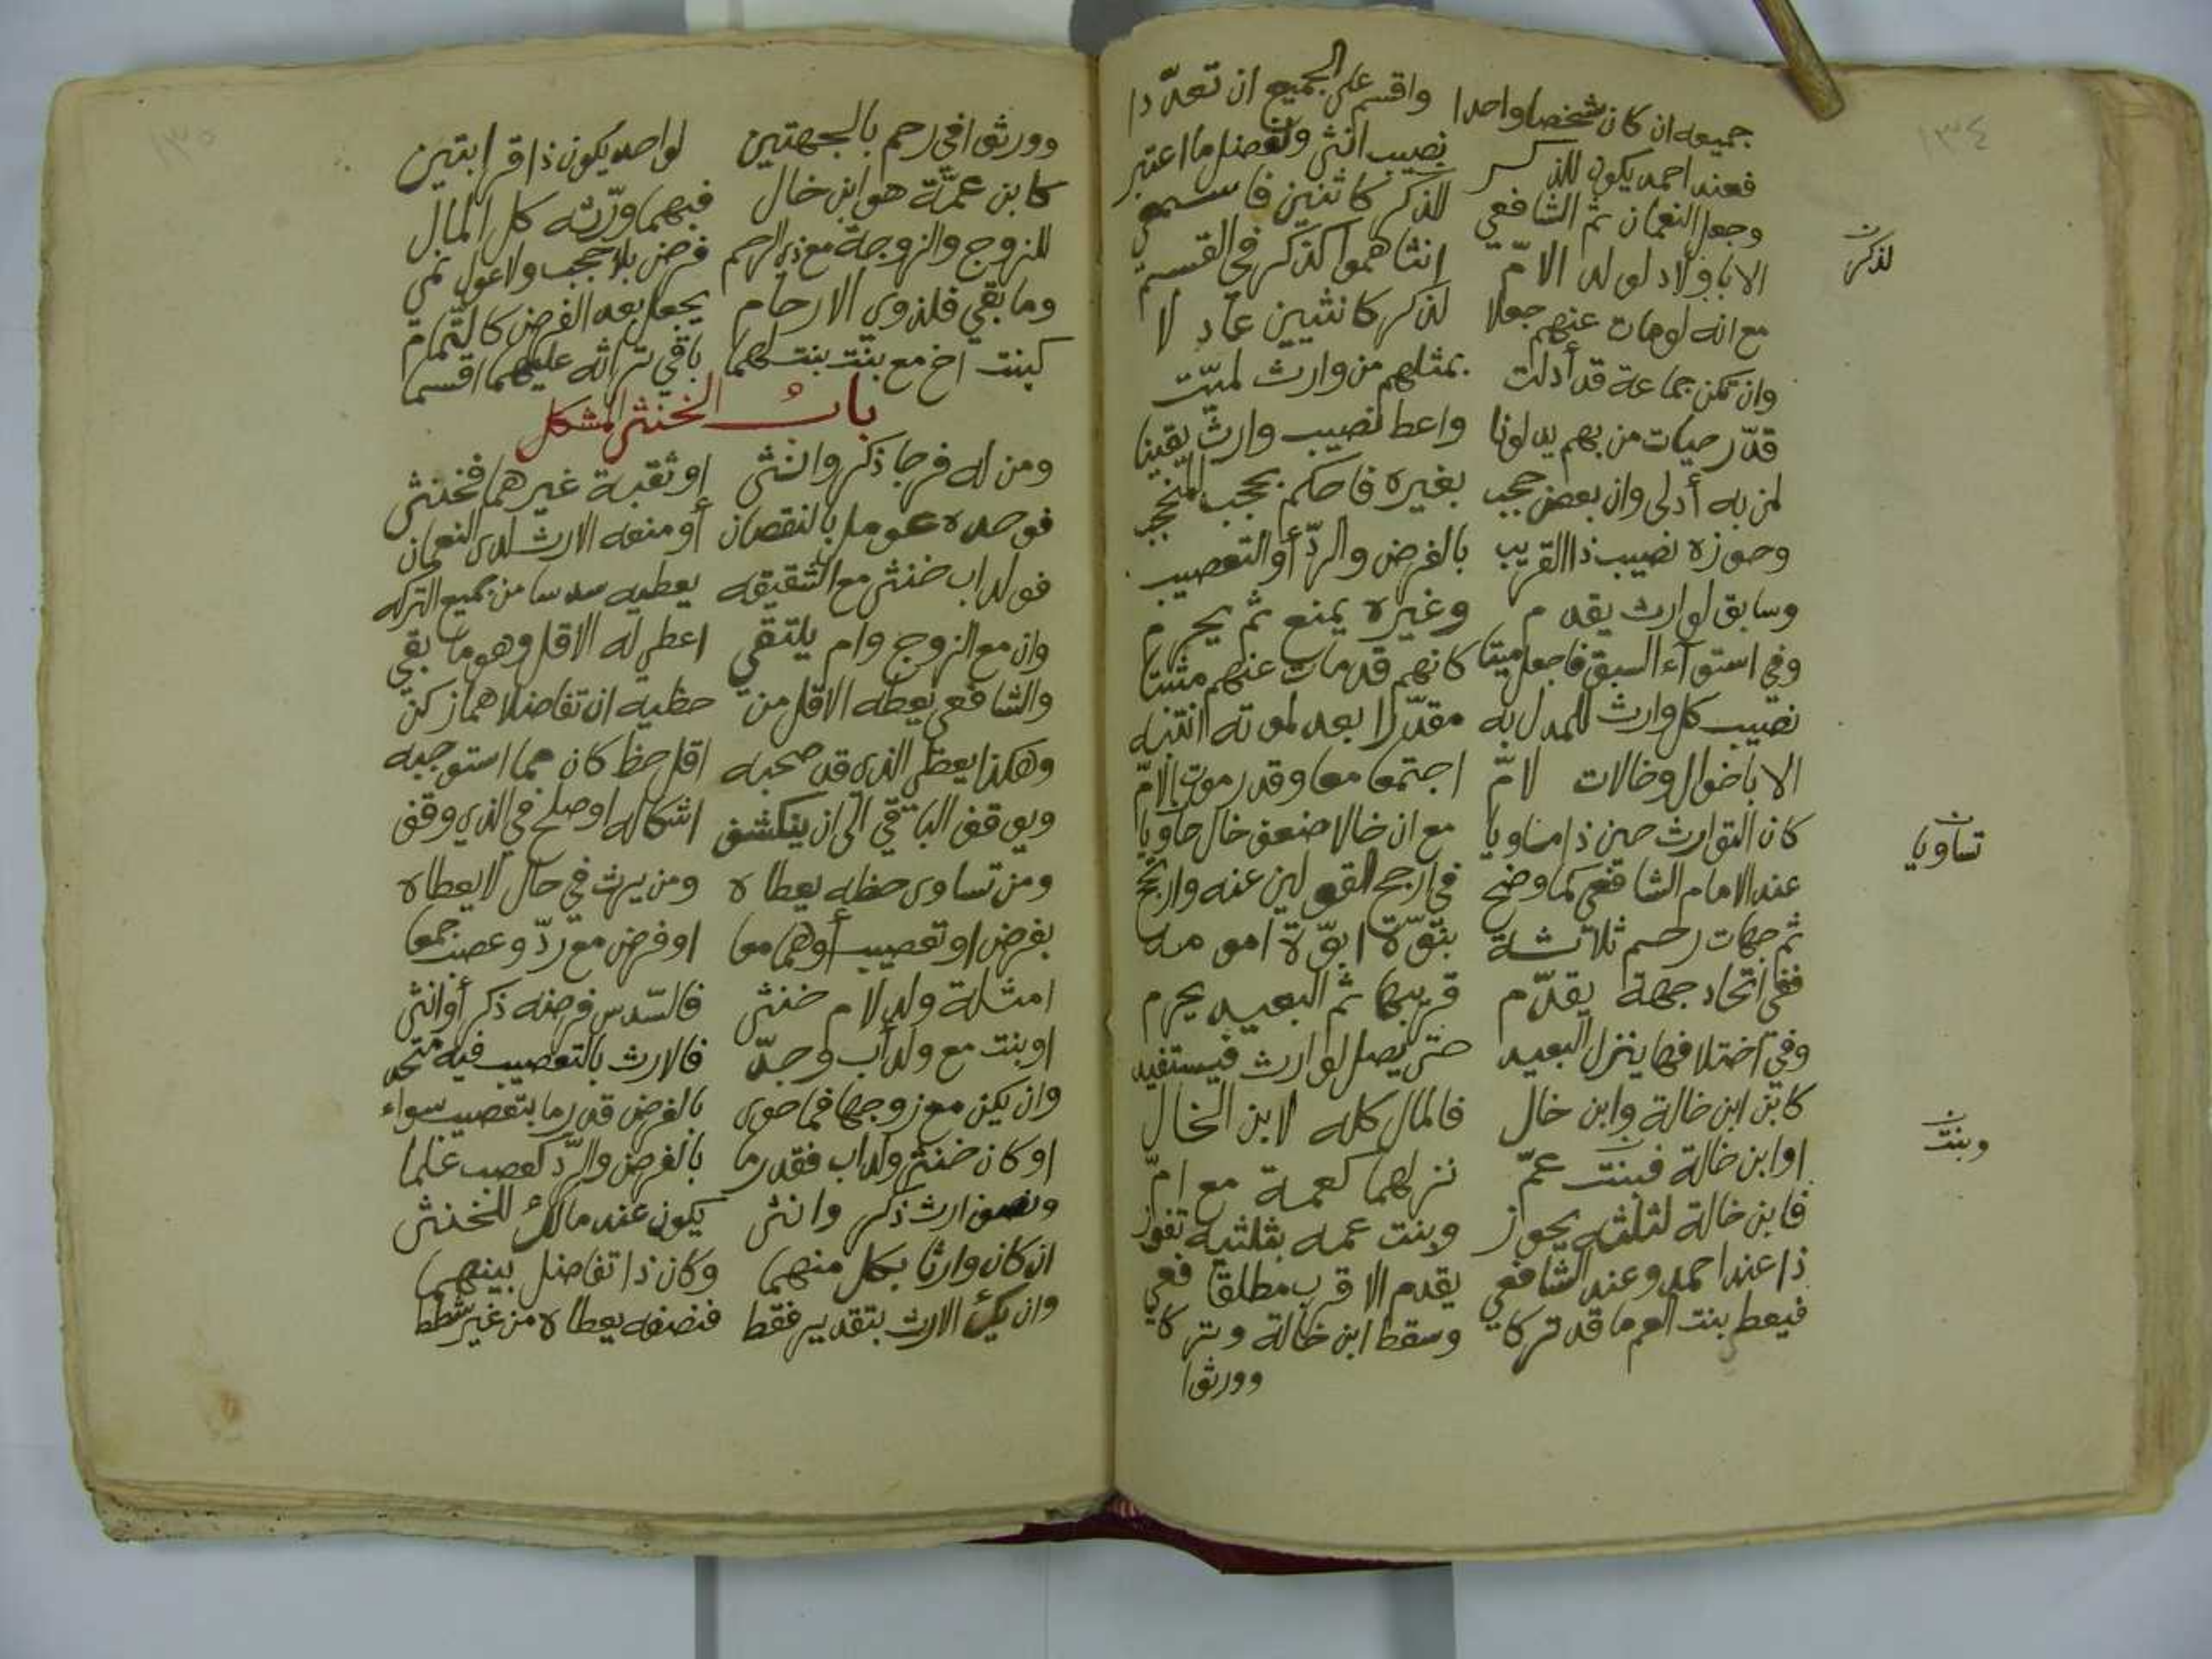 ١٣٤
جميعه ان كان شخصا واحدا واقسم على الجميع ان تعددا
فعند احمد يكون للذكر نصيب انثى ولتفضل ما اعتبر
وجعل النعمان ثم الشافعي للذكر كانثيين فاسمعي
الا باولاد لولد الامّ انثاهموا كذكر في القسم
لذكر
مع انه لومات عنهم جعلا لذكر كانثيين عاد لا
وان تكن جماعة قد أدلت بمثلهم من وارث لميّت
قدّر حيات من بهم يدلونا واعط نصيب وارث يقينا
لمن به أدلى وان بعض حجب بغيره فاحكم بحجب المنحجب
وحوزه نصيب ذا القريب بالفرض والردّ أو التعصيب
وسابق لوارث يقدم وغيره يمنع ثم يحرم
وفي استوآء السبق فاجعل ميتا كانهم قد مات عنهم مثبتا
نصيب كل وارث للمدل به مقدّرا بعد لموته انتبه
الا باخوال وخالات لامّ اجتمعا معا وقدر موت الامّ
كان التوارث حين ذا مناويا مع ان خالا ضعف خال حاويا
تساويا
عند الامام الشافعي كما وضح في ارجح القولين عنه وارجح
ثم جهات رحم ثلاثة بنوّة ابوّة امومه
ففي اتحاد جهة يقدّم قريبها ثم البعيد يحرم
وفي اختلافها ينزل البعيد حتى يصل لوارث فيستفيد
كابن ابن خالة وابن خال فالمال كله لابن الخال
وبنت
اوابن خالة فبنت عمّ نزلهما كعمة مع امّ
فابن خالة لثلثه يحوز وبنت عمه بثلثيه تفوز
ذا عند احمد وعند الشافعي يقدم الاقرب مطلقا فعي
فيعط بنت العم ما قد تركا وسقط ابن خالة وتركا
وورثوا
١٣٥
وورثوا في رحم بالجهتين لواحد يكون ذا قرابتين
كابن عمّة هو ابن خال فبهما ورّثه كل المال
للزوج والزوجة مع ذي الرحم فرض بلا حجب ولا عول نمي
وما بقي فلذوي الارحام يجعل بعد الفرض كالتمام
كبنت اخ مع بنت بنت لهما باقي تراثه عليهما اقسما
باب الخنثى المشكل
ومن له فرجا ذكر وانثى او ثقبة غيرهما فخنثى
فوحده عومل بالنقصان أو منعه الارث لدى النعمان
فولد اب خنثى مع الشقيقه يعطيه سدسا من جميع التركه
وان مع الزوج وام يلتقي اعطي له الاقل وهو ما بقي
والشافعي يعطه الاقل من حظيه ان تفاضلا هما زكن
وهكذا يعطى الذي قد صحبه اقل حظ كان مما استوجبه
ويوقف الباقي الى ان ينكشف اشكاله او صلح في الذي وقف
ومن تساوى حظه يعطاه ومن يرث في حال لا يعطاه
بفرض او تعصيب أوهما معا او فرض مع ردّ وعصب جمعا
امثلة ولد لام خنثى فالسّدس فرضه ذكر أو انثى
او بنت مع ولد أب وجدّ فالارث بالتعصيب فيه متحد
وان يكن مع زوجها فما حوى بالفرض قدر ما بتعصيب سواء
او كان خنثى ولد اب فقد رما بالفرض والردّ كعصب علما
ونصف ارث ذكر وانثى يكون عند مالك للخنثى
ان كان وارثا بكل منهما وكان ذا تفاضل بينهما
وان يك الارث بتقدير فقط فنصفه يعطاه من غير شطط